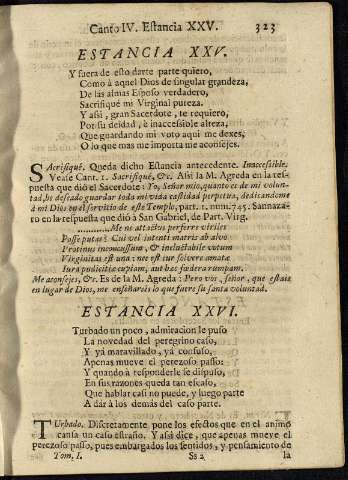 Canto IV. Estancia XXV. 323
ESTANCIA XXV.
Y fuera de esto darte parte quiero,
Como à aquel Dios de singular grandeza,
De las almas Esposo verdadero,
Sacrifiqué mi Virginal pureza.
Y assi, gran Sacerdote, te requiero,
Por su deidad, è inaccessible alteza,
Que guardando mi voto aqui me dexes,
O lo que mas me importa me aconsejes.
Sacrifiquè. Queda dicho Estancia antecedente. Inaccesible.
Vease Cant. 1. Sacrifiquè, &c. Assi la M. Agreda en la res-
puesta que diò el Sacerdote: Yo, Señor mio, quanto es de mi volun-
tad, he deseado guardar toda mi vida castidad perpetua, dedicandome
à mi Dios en el servicio de este Templo, part. 1. num. 745. Sannaza-
ro en la respuesta que diò à San Gabriel, de Part. Virg.
.......... Me ne attactus perferre viriles
Posse putas? Cui vel intenti matris ab alvo
Protinus inconcussum, & ineluctabile votum
Virginitas est una: nec est cur solvere amatæ
Iura pudicitiæ cupiam, aut hæc fœdera rumpam.
Me aconsejes, &c. Es de la M. Agreda: Pero vos, Señor, que estais
en lugar de Dios, me enseñareis lo que fuere su santa voluntad.
ESTANCIA XXVI.
Turbado un poco, admiracion le puso
La novedad del peregrino caso,
Y yá maravillado, yá confuso,
Apenas mueve el perezoso passo:
Y quando à responderle se dispuso,
En sus razones queda tan escaso,
Que hablar casi no puede, y luego parte
A dár à los demás del caso parte.
Turbado. Discretamente pone los efectos que en el animo
causa un caso estraño. Y assi dice, que apenas mueve el
perezoso passo, pues embargados los sentidos, y pensamiento de
Tom. I. Ss 2 la